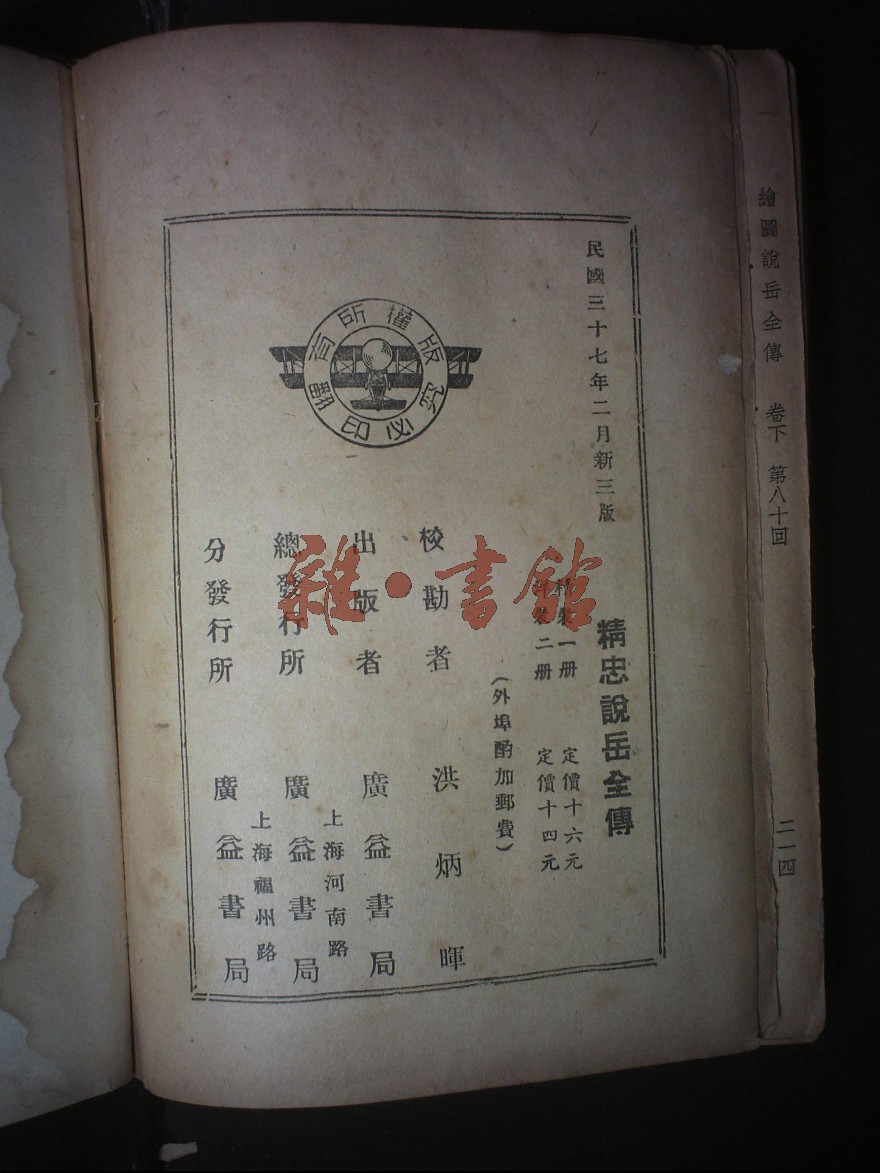 繪圖說岳全傳 卷下 第八十回 二一四
民國三十七年二月新三版
精忠說岳全傳
精裝一册 定價十六元
裝二册 定價十四元
（外埠酌加郵費）
校勘者 洪炳暉
出版者 廣益書局
上海河南路
總發行所 廣益書局
上海福州路
分發行所 廣益書局
版權所有
翻印必究
雜·書館